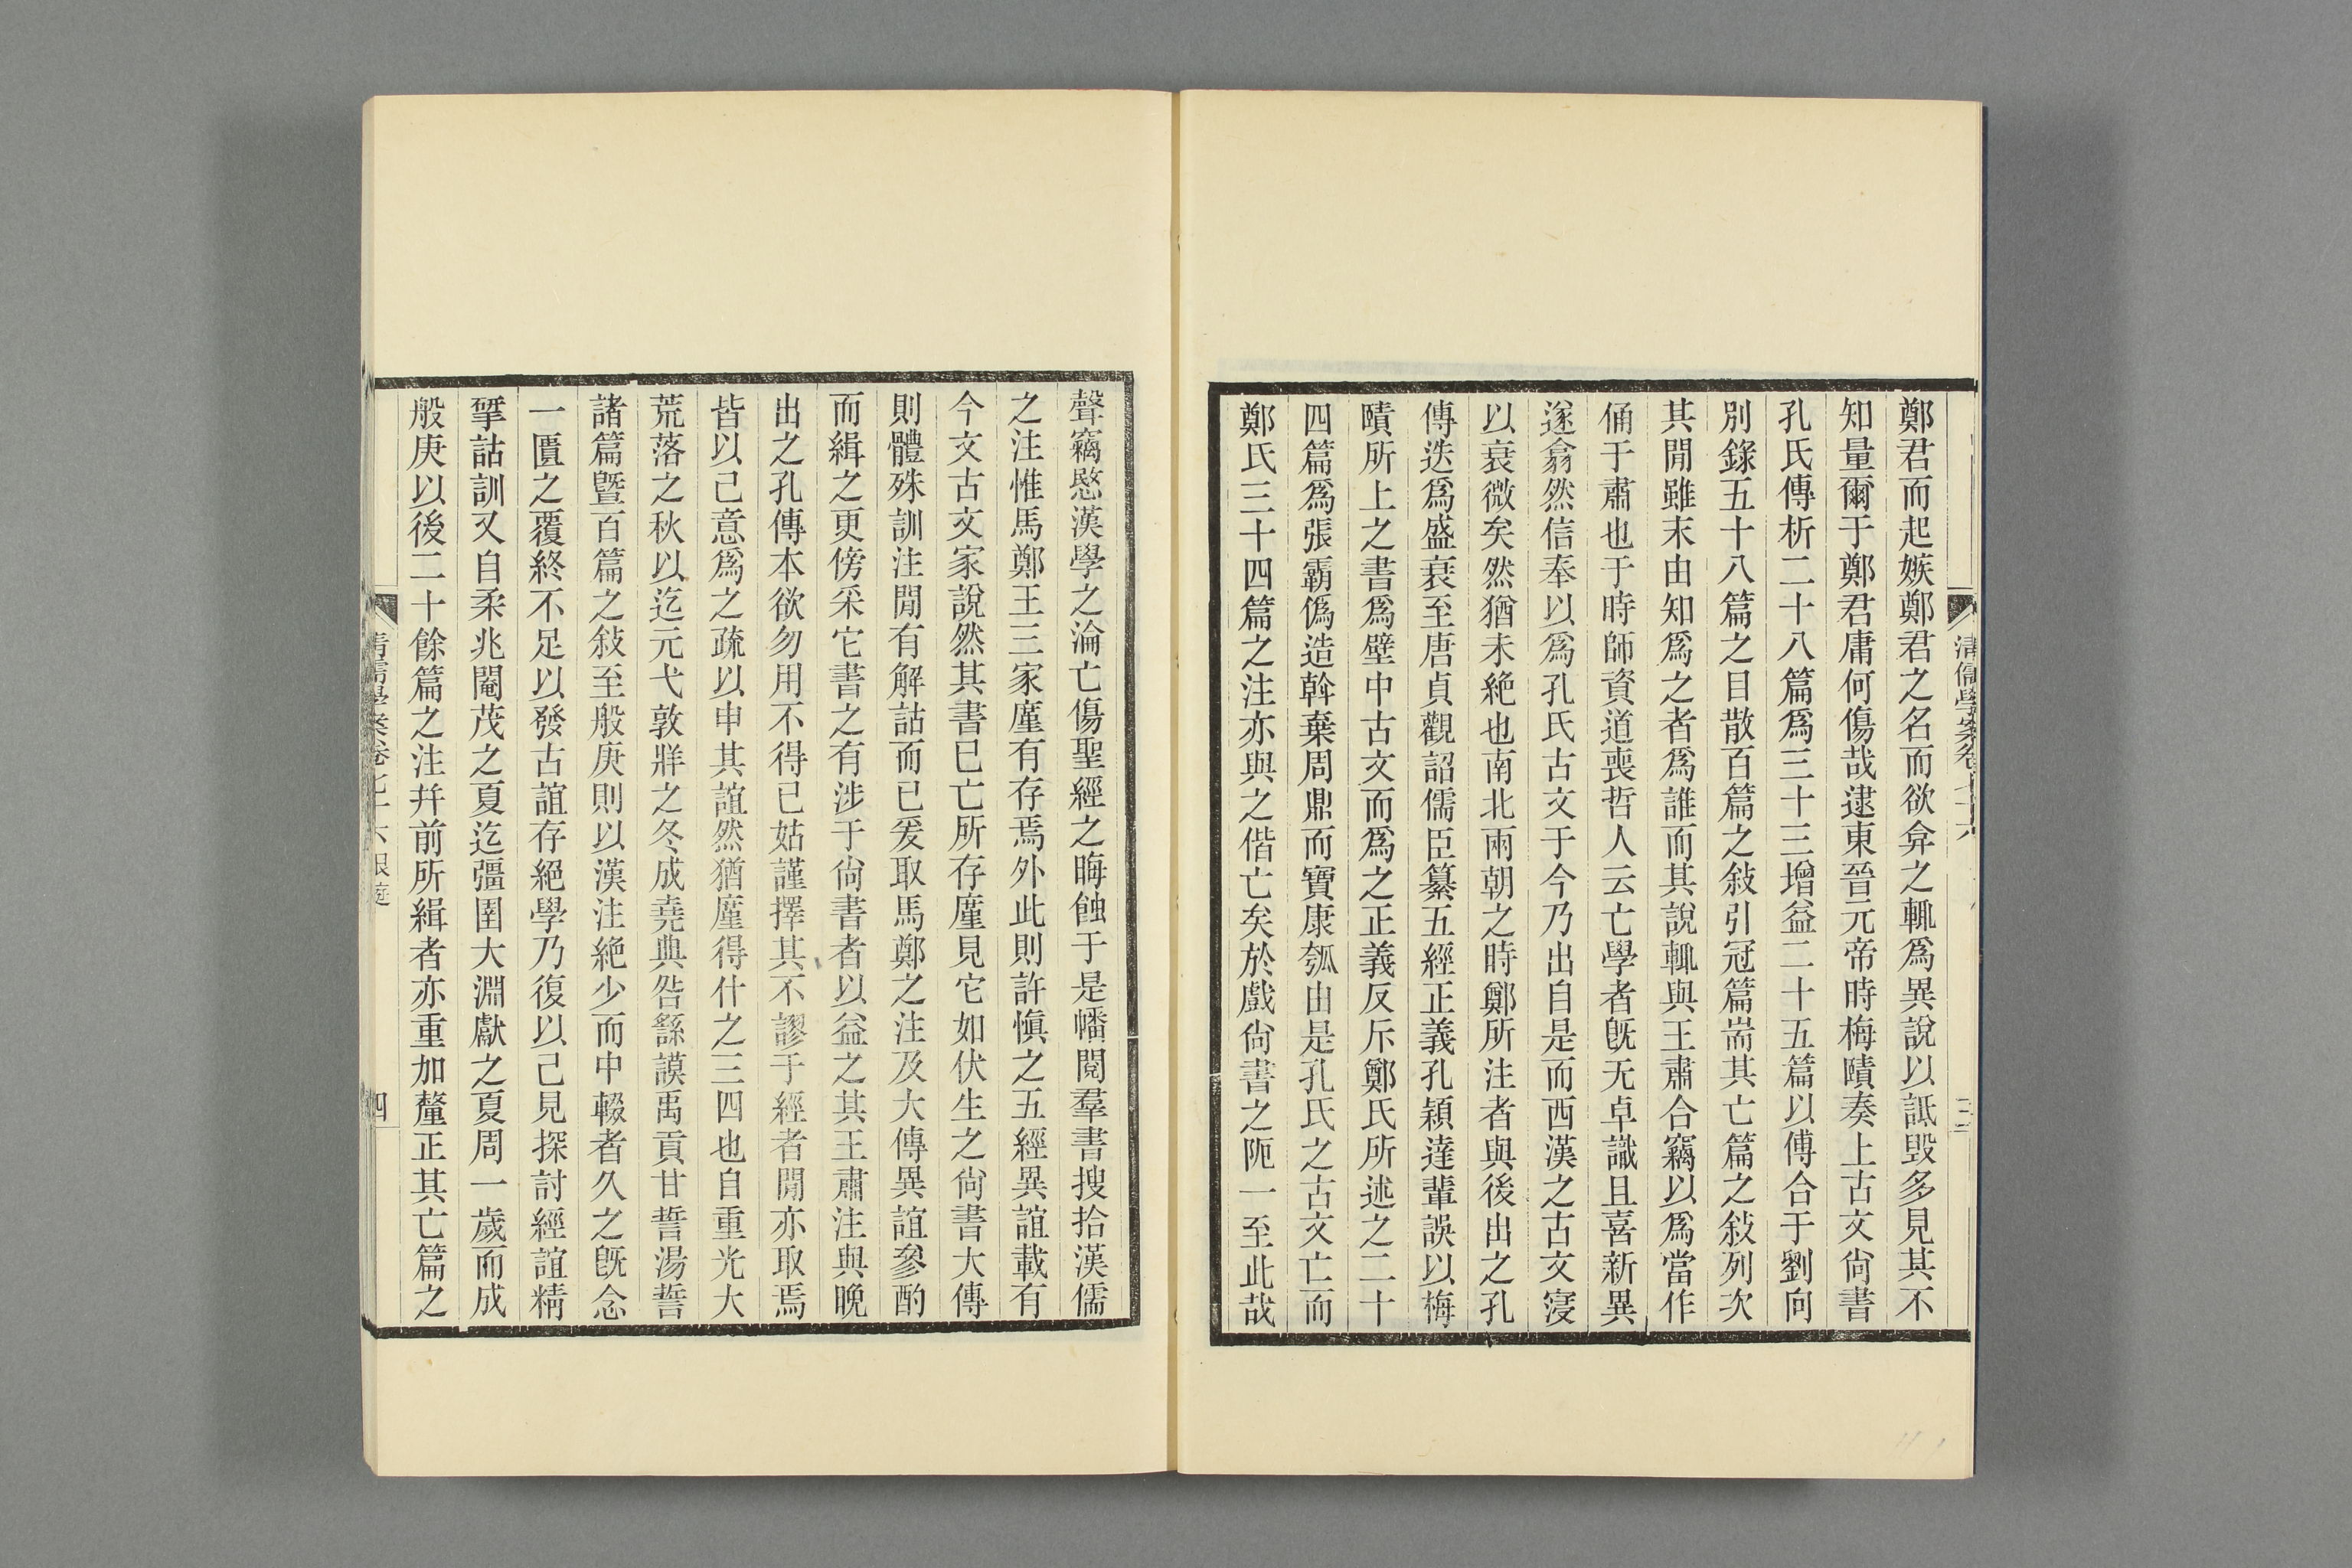 鄭君而起嫉鄭君之名而欲弇之輒爲異說以詆毀多見其不
知量爾于鄭君庸何傷哉逮東晉元帝時梅賾奏上古文尙書
孔氏傳析二十八篇爲三十三增益二十五篇以傅合于劉向
別錄五十八篇之目散百篇之敍引冠篇耑其亡篇之敍列次
其閒雖末由知爲之者爲誰而其說輒與王肅合竊以爲當作
俑于肅也于時師資道喪哲人云亡學者旣无卓識且喜新異
遂翕然信奉以爲孔氏古文于今乃出自是而西漢之古文寖
以衰微矣然猶未絶也南北兩朝之時鄭所注者與後出之孔
傳迭爲盛衰至唐貞觀詔儒臣纂五經正義孔穎達輩誤以梅
賾所上之書爲壁中古文而爲之正義反斥鄭氏所述之二十
四篇爲張霸僞造斡棄周鼎而寶康瓠由是孔氏之古文亡而
鄭氏三十四篇之注亦與之偕亡矣於戲尙書之阨一至此哉
聲竊愍漢學之淪亡傷聖經之晦蝕于是幡閱羣書搜拾漢儒
之注惟馬鄭王三家廑有存焉外此則許愼之五經異誼載有
今文古文家說然其書已亡所存廑見它如伏生之尙書大傳
則體殊訓注閒有解詁而已爰取馬鄭之注及大傳異誼參酌
而緝之更傍采它書之有涉于尙書者以益之其王肅注與晚
出之孔傳本欲勿用不得已姑謹擇其不謬于經者閒亦取焉
皆以己意爲之疏以申其誼然猶廑得什之三四也自重光大
荒落之秋以迄元弋敦牂之冬成堯典咎繇謨禹貢甘誓湯誓
諸篇曁百篇之敍至般庚則以漢注絶少而中輟者久之旣念
一匱之覆終不足以發古誼存絕學乃復以己見探討經誼精
揅詁訓又自柔兆閹茂之夏迄彊圉大淵獻之夏周一歲而成
般庚以後二十餘篇之注幷前所緝者亦重加釐正其亡篇之
清儒學案卷七十六艮庭
四